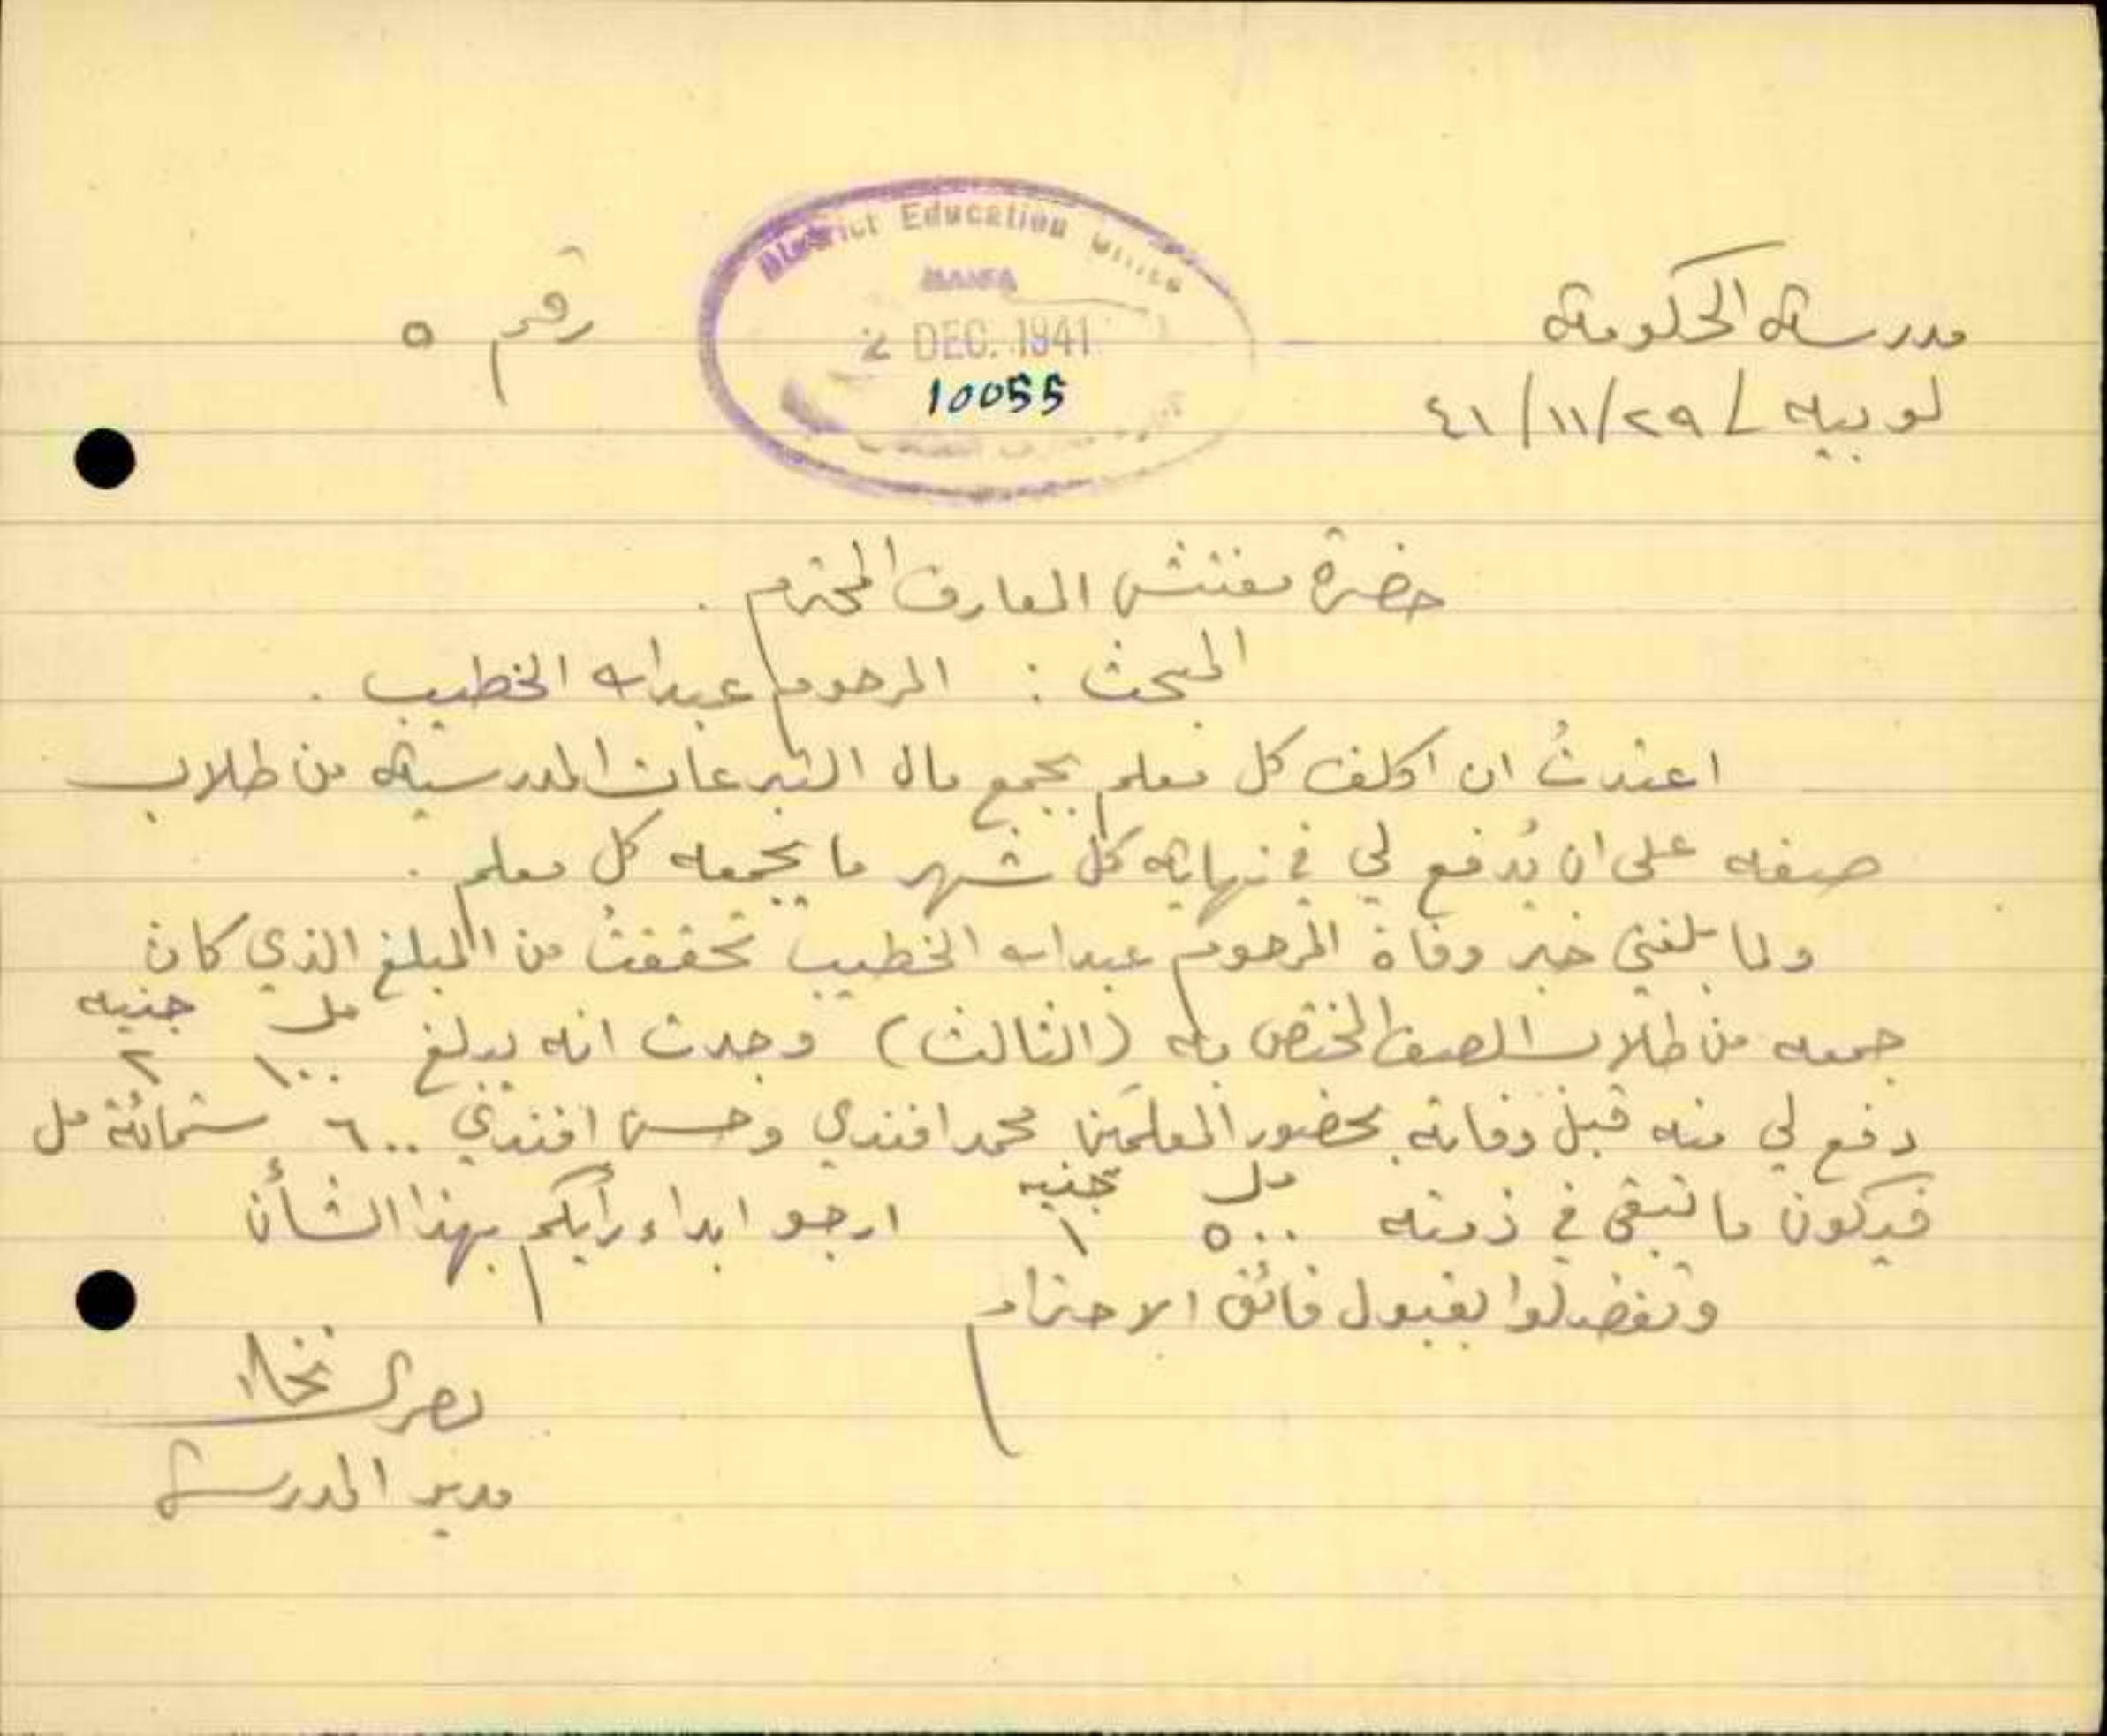 مدرسة الحكومة
لوبيه / ٢٩/١١/٤١
District Education Office
HAIFA
2 DEC. 1941
10055
رقم ٥
حضرة مفتش المعارف المحترم .
المبحث : المرحوم عبدالله الخطيب .
اعتدتُ ان اكلف كل معلم بجمع مال التبرعات المدرسية من طلاب
صفه على ان يُدفع لي في نهاية كل شهر ما يجمعه كل معلم .
ولما بلغني خبر وفاة المرحوم عبدالله الخطيب تحققتُ من المبلغ الذي كان
مل جنيه
جمعه من طلاب الصف المختص به (الثالث) وجدت انه يبلغ ١٠٠ ٢
دفع لي منه قبل وفاته بحضور المعلمَين محمد افندي وحسن افندي ٦٠٠ ستمائة مل
مل جنيه
فيكون ما تبقى في ذمته ٥٠٠ ١ ارجو ابداء رأيكم بهذا الشأن
وتفضلوا بقبول فائق الاحترام
مدير المدرسة